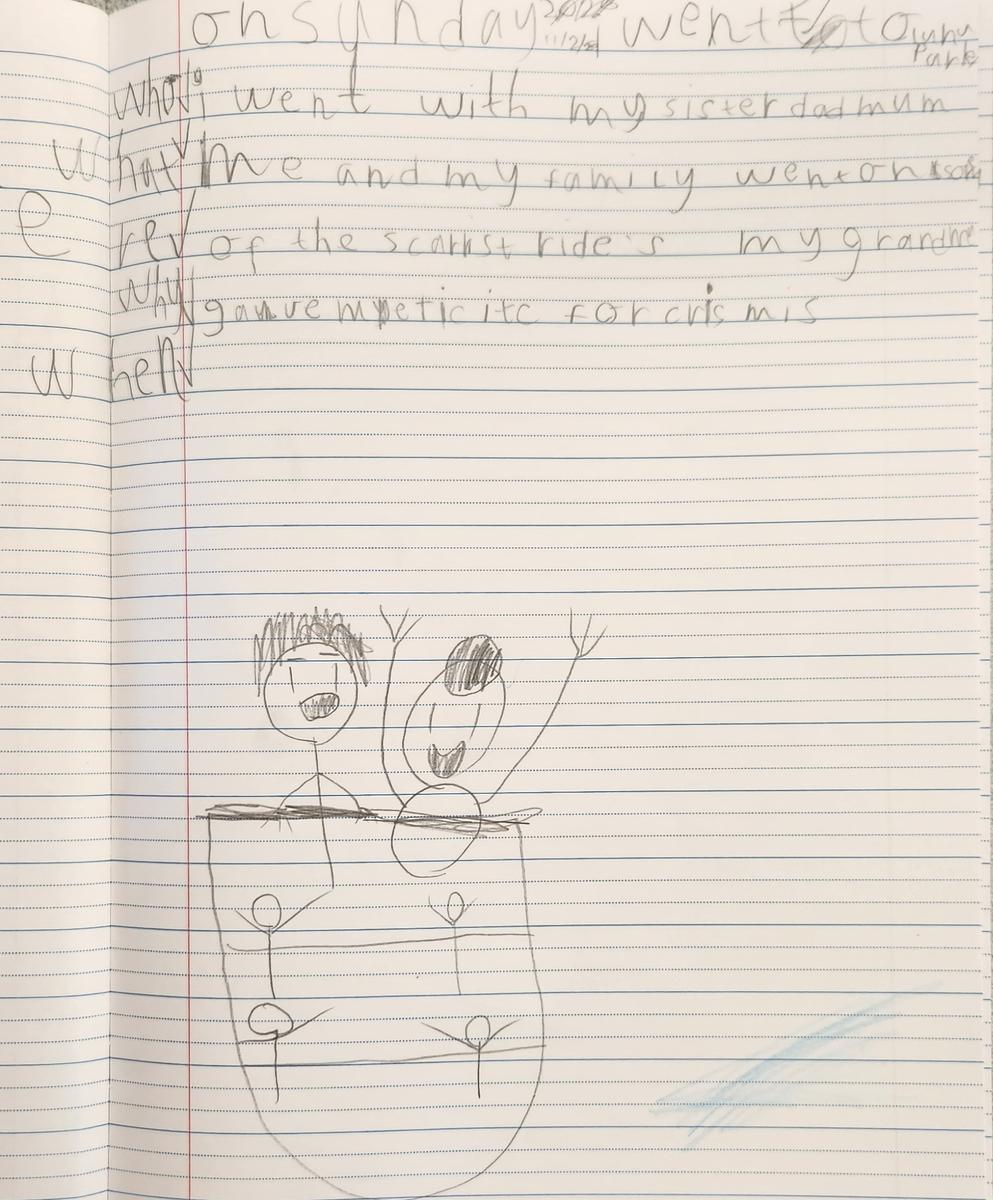 on synday went to luny
Park
who i went with my sister dad mum
what me and my family went on
e rev of the scarhst ride's my grandme
why gauve me tic itc for cris mis
when